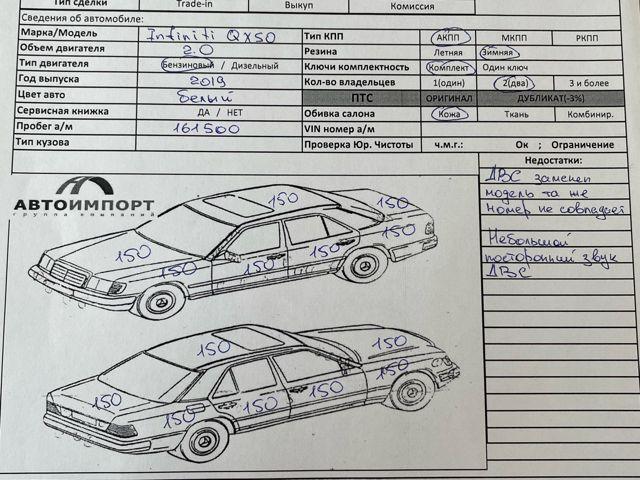 Тип сделки Trade-in Выкуп Комиссия
Сведения об автомобиле:
Марка/Модель Infiniti QX50 Тип КПП АКПП МКПП РКПП
Объем двигателя 2.0 Резина Летняя Зимняя
Тип двигателя Бензиновый / Дизельный Ключи комплектность Комплект Один ключ
Год выпуска 2019 Кол-во владельцев 1(один) 2(два) 3 и более
Цвет авто белый ПТС ОРИГИНАЛ ДУБЛИКАТ(-3%)
Сервисная книжка ДА / НЕТ Обивка салона Кожа Ткань Комбинир.
Пробег а/м 161500 VIN номер а/м
Тип кузова Проверка Юр. Чистоты ч.м.г.: Ок ; Ограничение
Недостатки:
ДВС заменен
модель та же
номер не совпадает
Небольшой
посторонний звук
ДВС
АВТОИМПОРТ
группа компаний
150
150
150
150
150
150
150
150
150
150
150
150
150
150